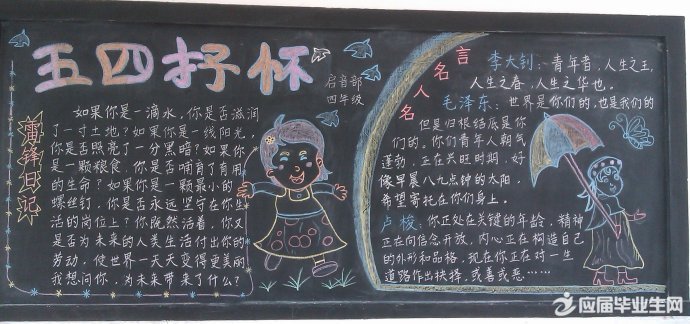 五四抒怀
启音部
四年级
雷锋日记
如果你是一滴水，你是否滋润
了一寸土地？如果你是一线阳光，
你是否照亮了一分黑暗？如果你
是一颗粮食，你是否哺育了有用
的生命？如果你是一颗最小的
螺丝钉，你是否永远坚守在你生
活的岗位上？你既然活着，你又
是否为未来的人类生活付出你的
劳动，使世界一天天变得更美丽
我想问你，为未来带来了什么？
名人名言
李大钊：青年者，人生之王，
人生之春，人生之华也。
毛泽东：世界是你们的，也是我们的
但是归根结底是你
们的，你们青年人朝气
蓬勃，正在兴旺时期，好
像早晨八九点钟的太阳，
希望寄托在你们身上。
卢梭：你正处在关键的年龄，精神
正在向信念开放，内心正在构造自己
的外形和品格，现在你正在对一生
道路作出抉择，或善或恶……
应届毕业生网